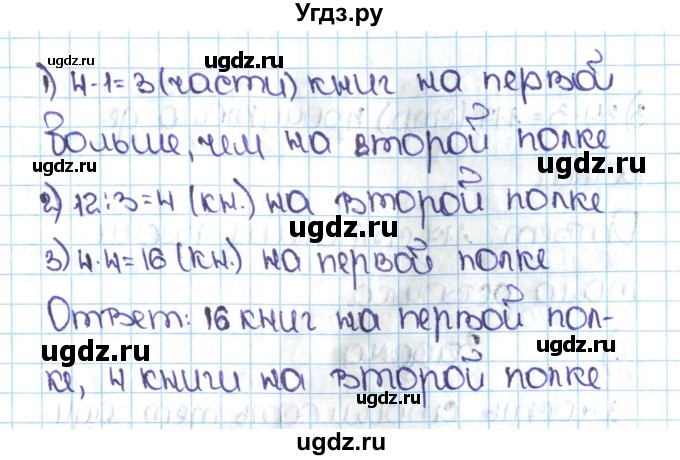 Угдз.ру
1) 4-1=3 (части) книг на первой
больше, чем на второй полке
2) 12:3=4 (кн.) на второй полке
3) 4·4=16 (кн.) на первой полке
Ответ: 16 книг на первой пол-
ке, 4 книги на второй полке
ugdz.ru
ugdz.ru
ugdz.ru
ugdz.ru
ugdz.ru
ugdz.ru
ugdz.ru
ugdz.ru
ugdz.ru
ugdz.ru